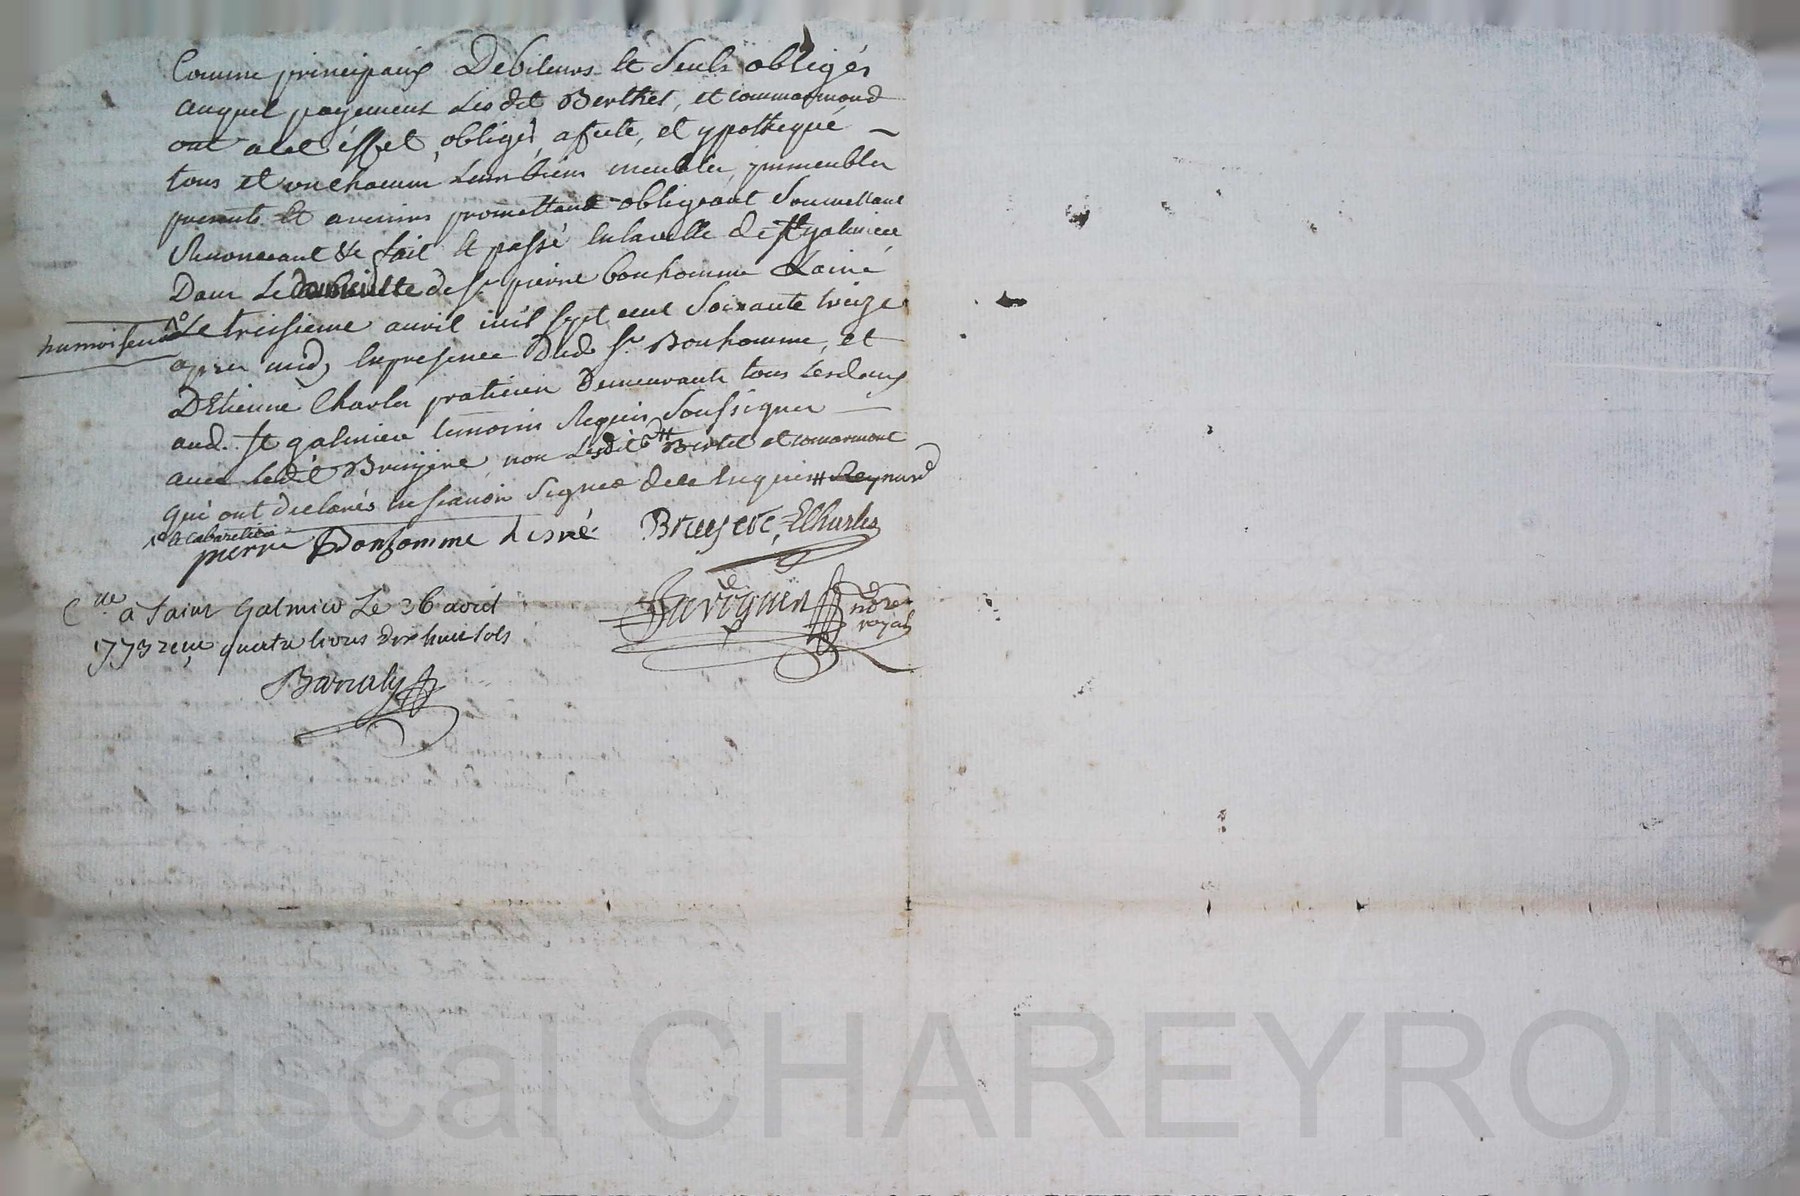 Comme principaux Debiteurs et seuls obligés
auquel payement Lesdit Berthet, et commarmond
ont acet éffet, obligés, afecte, et ypothequé
tous et un chacun Leurs biens meubles, ymmeubles
presents et avenirs promettant obligeant Soumettant
Renonceant &c fait et passé en la ville de St galmier
Dans Le domicille de Sr pierre bonhomme Lainé
Le treisieme auvril mil sept cent Soixante treize
apres midy En presence Dud Sr Bonhomme, et
DEtienne Charles praticien Demeurants tous Lesdeux
aud. St galmier temoins Requis Soussignes
avec ledit Bruyere, non Lesdit Bertet et comarmont
qui ont declarés ne scavoir Signer de ce Enquis # Reynard
Le cabaretier
pierre Bonhomme Lesné Bruyere, ECharles
Cllé à Saint Galmier Le 26 avril
1773 reçu quatre livres dix huit sols
nore royal
Barraly
Pascal CHAREYRON